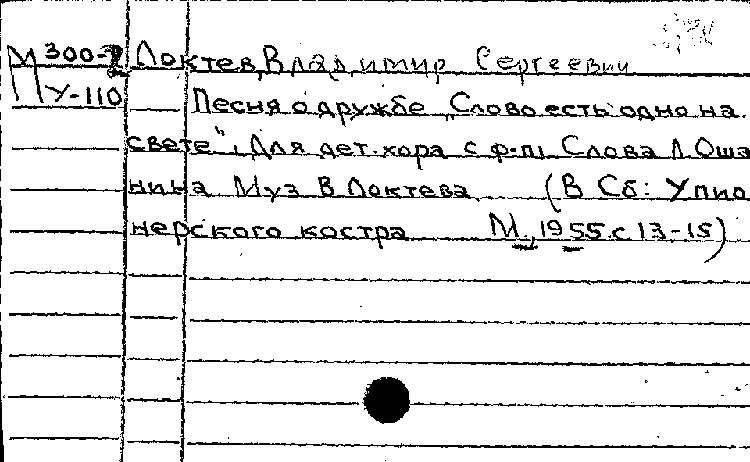 М 300-2 Локтев, Владимир Сергеевич
П У-110 Песня о дружбе „Слово есть одно на
свете", Для дет. хора с ф-п. Слова Л. Оша
нина Муз В Локтева (В Сб: У пио
нерского костра М., 1955. с 13-15)